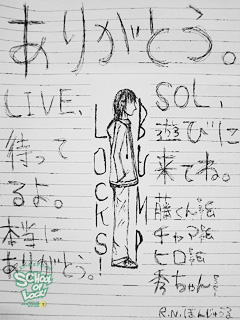 ありがとう。
LIVE、
待って
るよ。
本当に
ありがとう。
LOCKS!
BUMP
SOL、
遊びに
来てね。
藤くん絵
チャマ絵
ヒロ絵
秀ちゃん絵
SCHOOL OF LOCK!
R.N.ぽんじゅうす